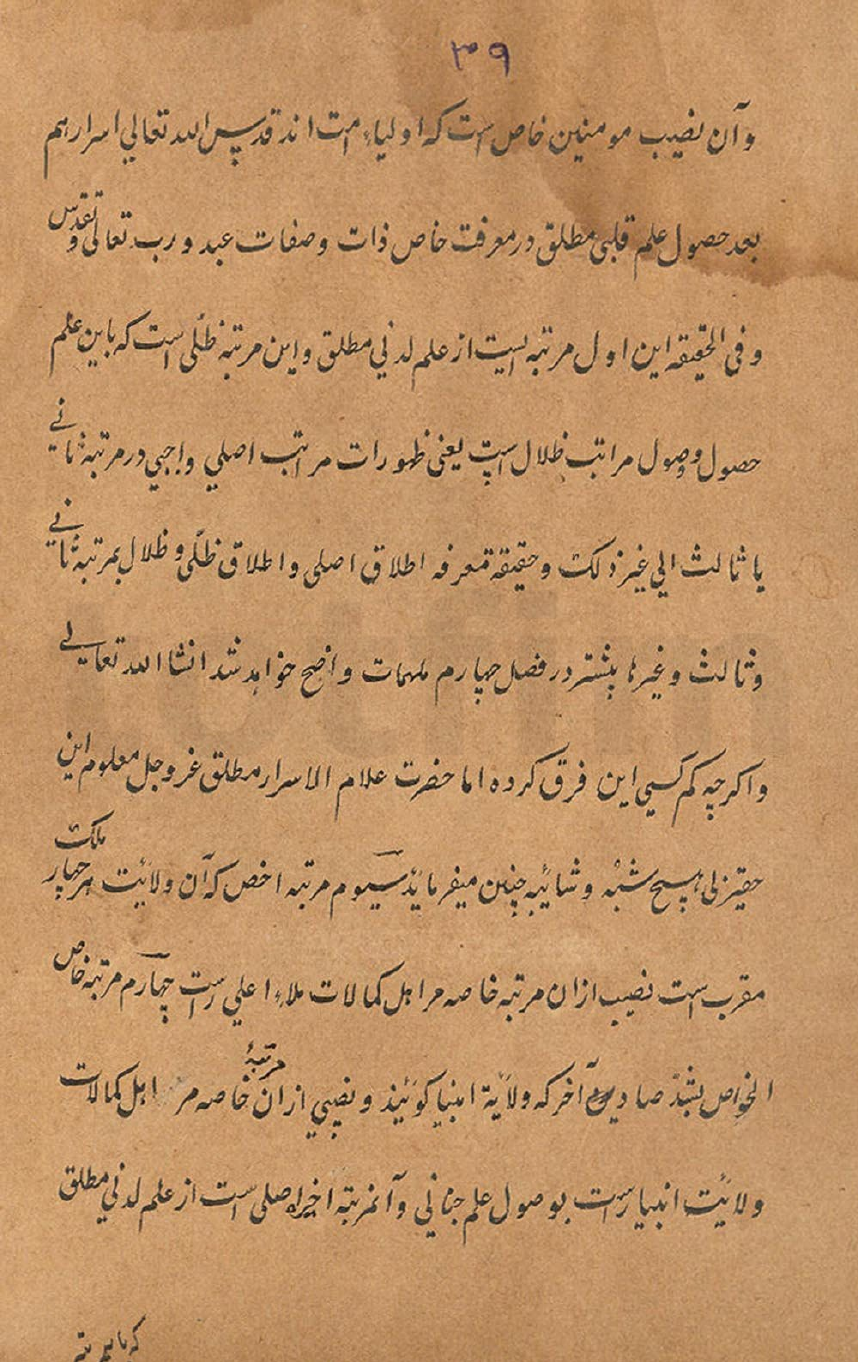 ۳۹
وآن نصیب مومنین خاص است که اولیاء امت اند قدس الله تعالی اسرارهم
بعد حصول علم قلبی مطلق در معرفت خاص ذات وصفات عبد ورب تعالی وتقدس
وفی الحقیقه این اول مرتبه ایست از علم لدنی مطلق واین مرتبه ظلّی است که باین علم
حصول وصول مراتب ظلال است یعنی ظهورات مراتب اصلی واجبی در مرتبه ثانی
یا ثالث الی غیر ذلک وحقیقة معرفه اطلاق اصلی واطلاق ظلّی وظلال بمرتبه ثانی
وثالث وغیرها بیشتر در فصل چهارم ملهمات واضح خواهد شد انشا الله تعالی
واکرچه کم کسی این فرق کرده اما حضرت علام الاسرار مطلق عز وجل معلوم این
حقیر بی هیچ شبه وشائبه چنین میفرماید سیوم مرتبه اخص که آن ولائیت هر چهار ملک
مقرب است نصیب ازان مرتبه خاصه مر اهل کمالات ملاء اعلی راست چهارم مرتبه خاص
الخواص آخر که ولایة انبیا کوئیند ونصیبی ازان مرتبهٔ خاصه مر اهل کمالات
ولائیت انبیا راست بوصول علم جنانی وآنمرتبه اخیره اصلی است از علم لدنی مطلق